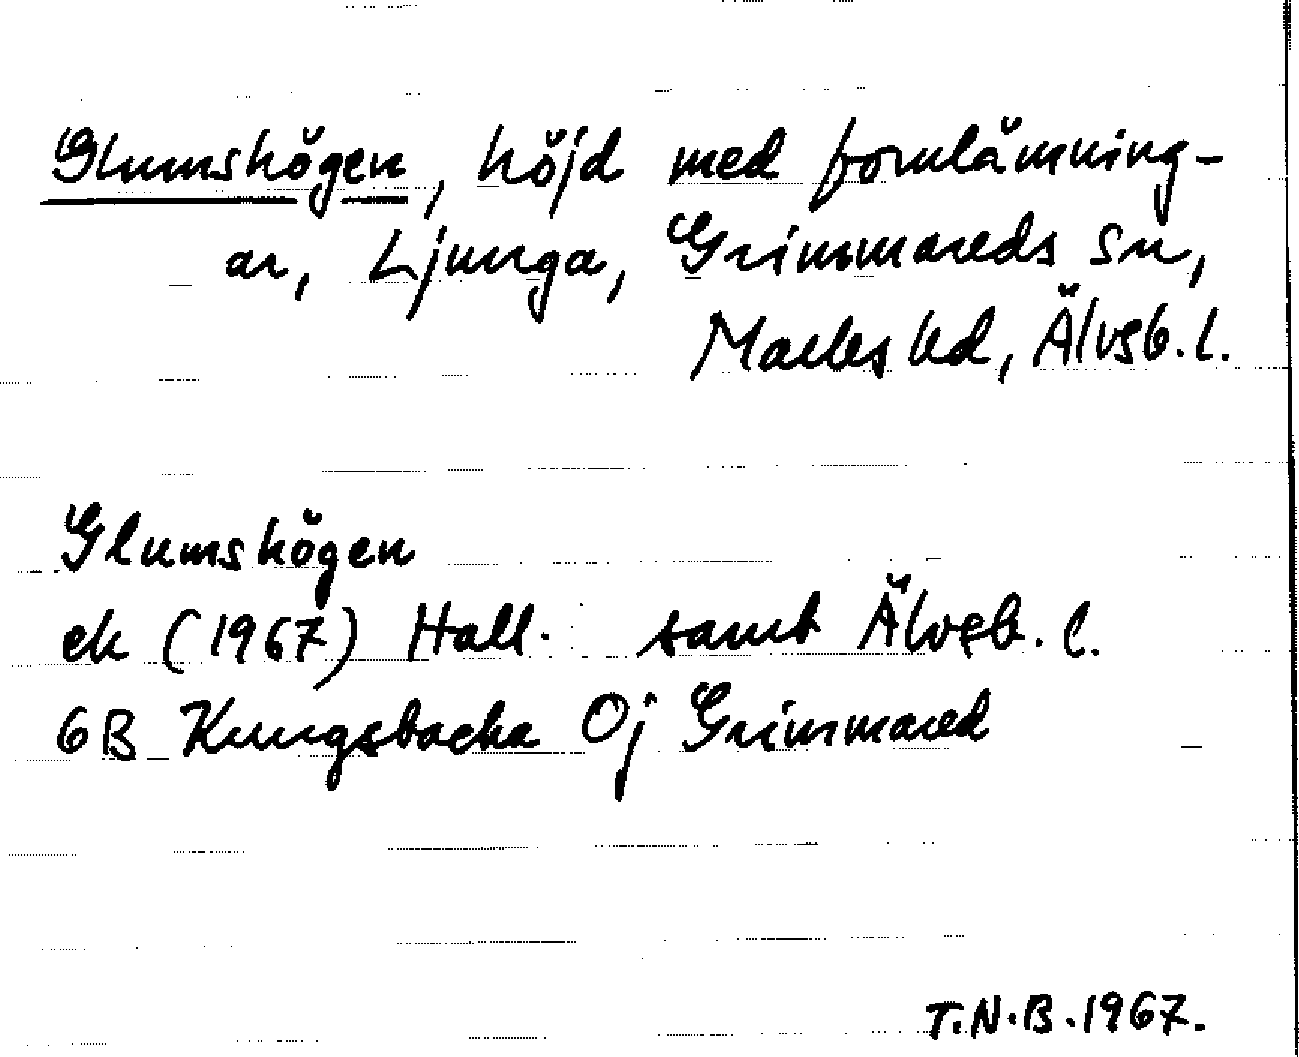 Glumshögen, höjd med fornlämning-
ar, Ljunga, Grimmareds sn,
Marks hd, Älvsb. l.
Glumshögen
ek (1967) Hall. samt Älvsb. l.
6B Kungsbacka Oj Grimmared
T.N.B. 1967.